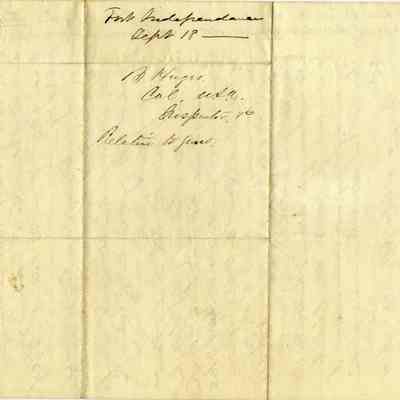 Fort Independence
Sept 18 —
B Huger
Col. U.S.A.
Inspector, &c
Relative to guns.